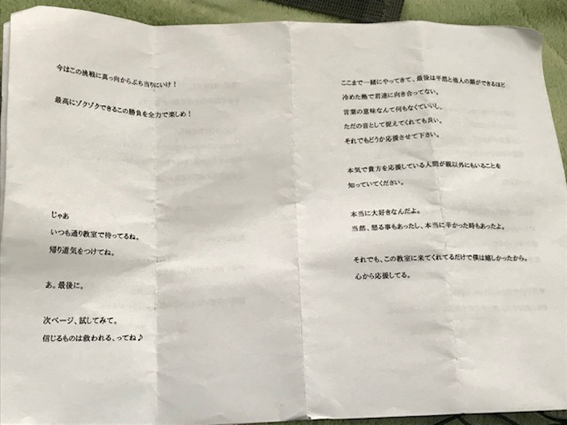 今はこの挑戦に真っ向からぶち当りにいけ！
最高にゾクゾクできるこの勝負を全力で楽しめ！
じゃあ
いつも通り教室で待ってるね。
帰り道気をつけてね。
あ。最後に。
次ページ、試してみて。
信じるものは救われる、ってね♪
ここまで一緒にやってきて、最後は平然と他人の顔ができるほど
冷めた熱で君達に向き合ってない。
言葉の意味なんて何もなくていいし、
ただの音として捉えてくれても良い。
それでもどうか応援させて下さい。
本気で貴方を応援している人間が親以外にもいることを
知っていてください。
本当に大好きなんだよ。
当然、怒る事もあったし、本当に辛かった時もあったよ。
それでも、この教室に来てくれてるだけで僕は嬉しかったから。
心から応援してる。